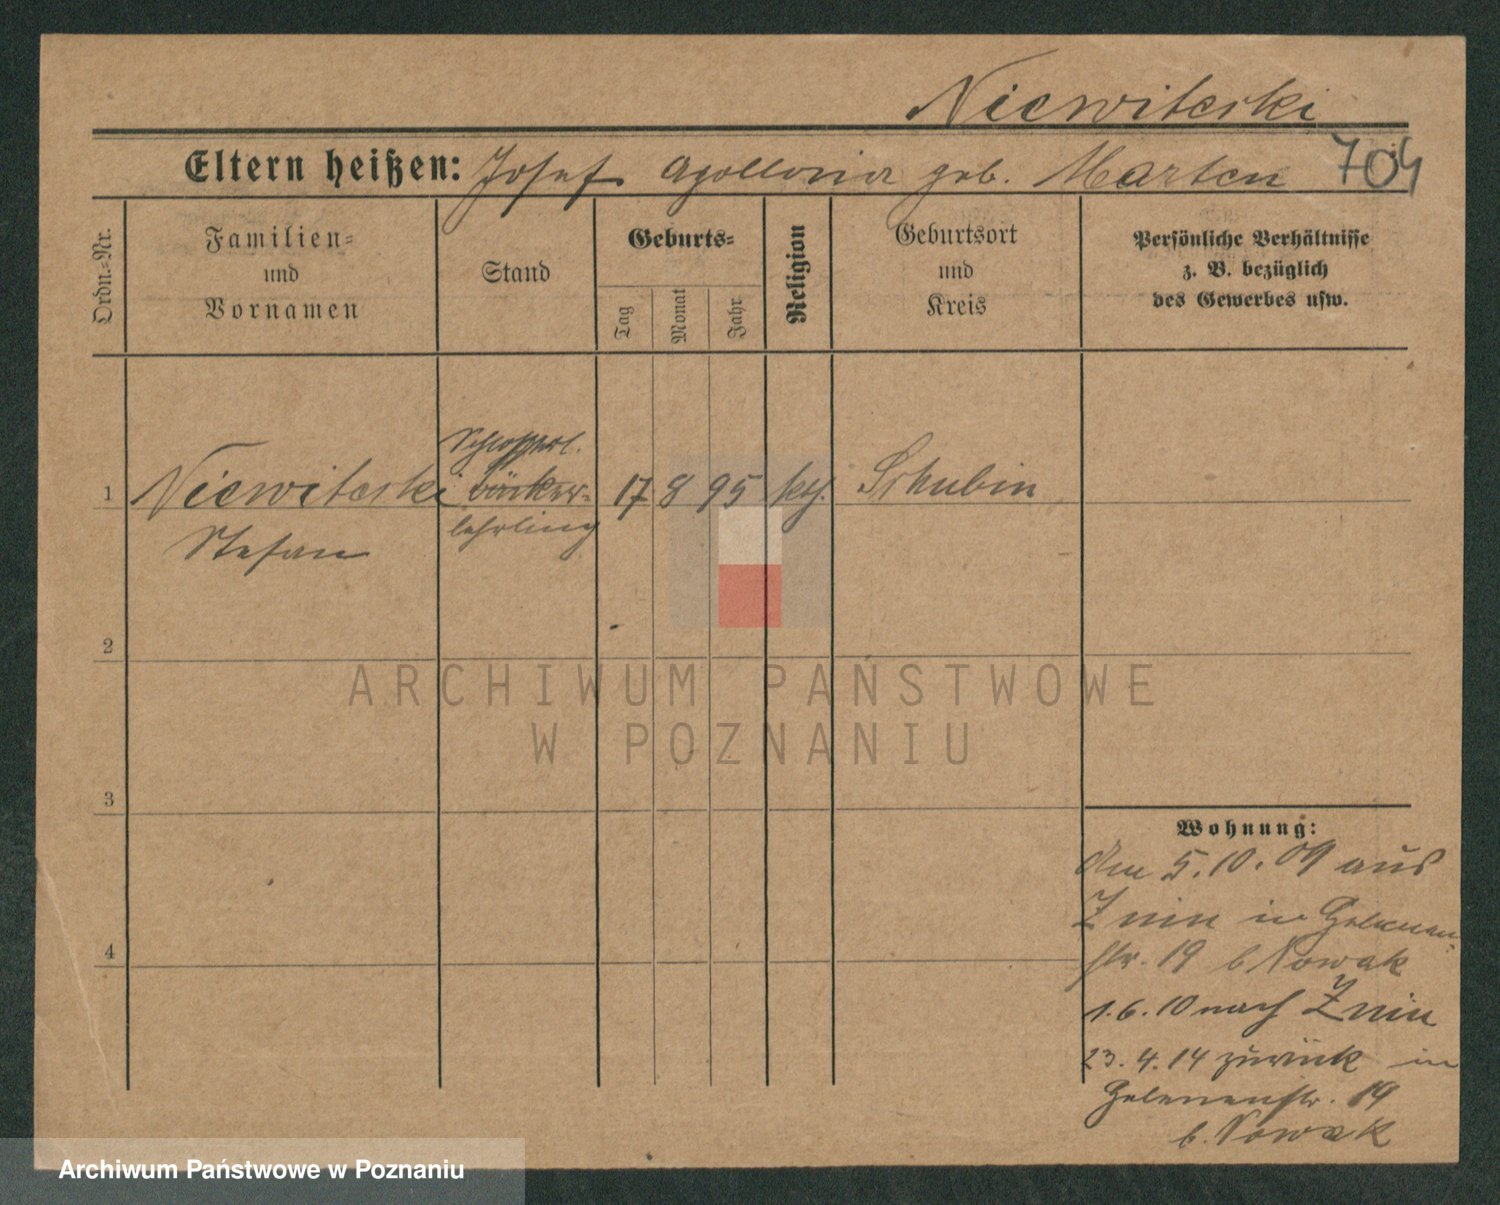 Niewiterski
Eltern heißen: Josef Apollonia geb. Marten 704
Ordn.-Nr.
Familien-
und
Vornamen
Stand
Geburts-
Tag
Monat
Jahr
Religion
Geburtsort
und
Kreis
Persönliche Verhältnisse
z. B. bezüglich
des Gewerbes usw.
Schlosserl.
1 Niewiterski Bäcker- 17 8 95 kth. Schubin
Stefan lehrling
2
ARCHIWUM PAŃSTWOWE
W POZNANIU
3
Wohnung:
Am 5.10.09 aus
Znin in
str. 19 b Nowak
4
1.6.10 nach Znin
23.4.14 zurück in
19
b. Nowak
Archiwum Państwowe w Poznaniu